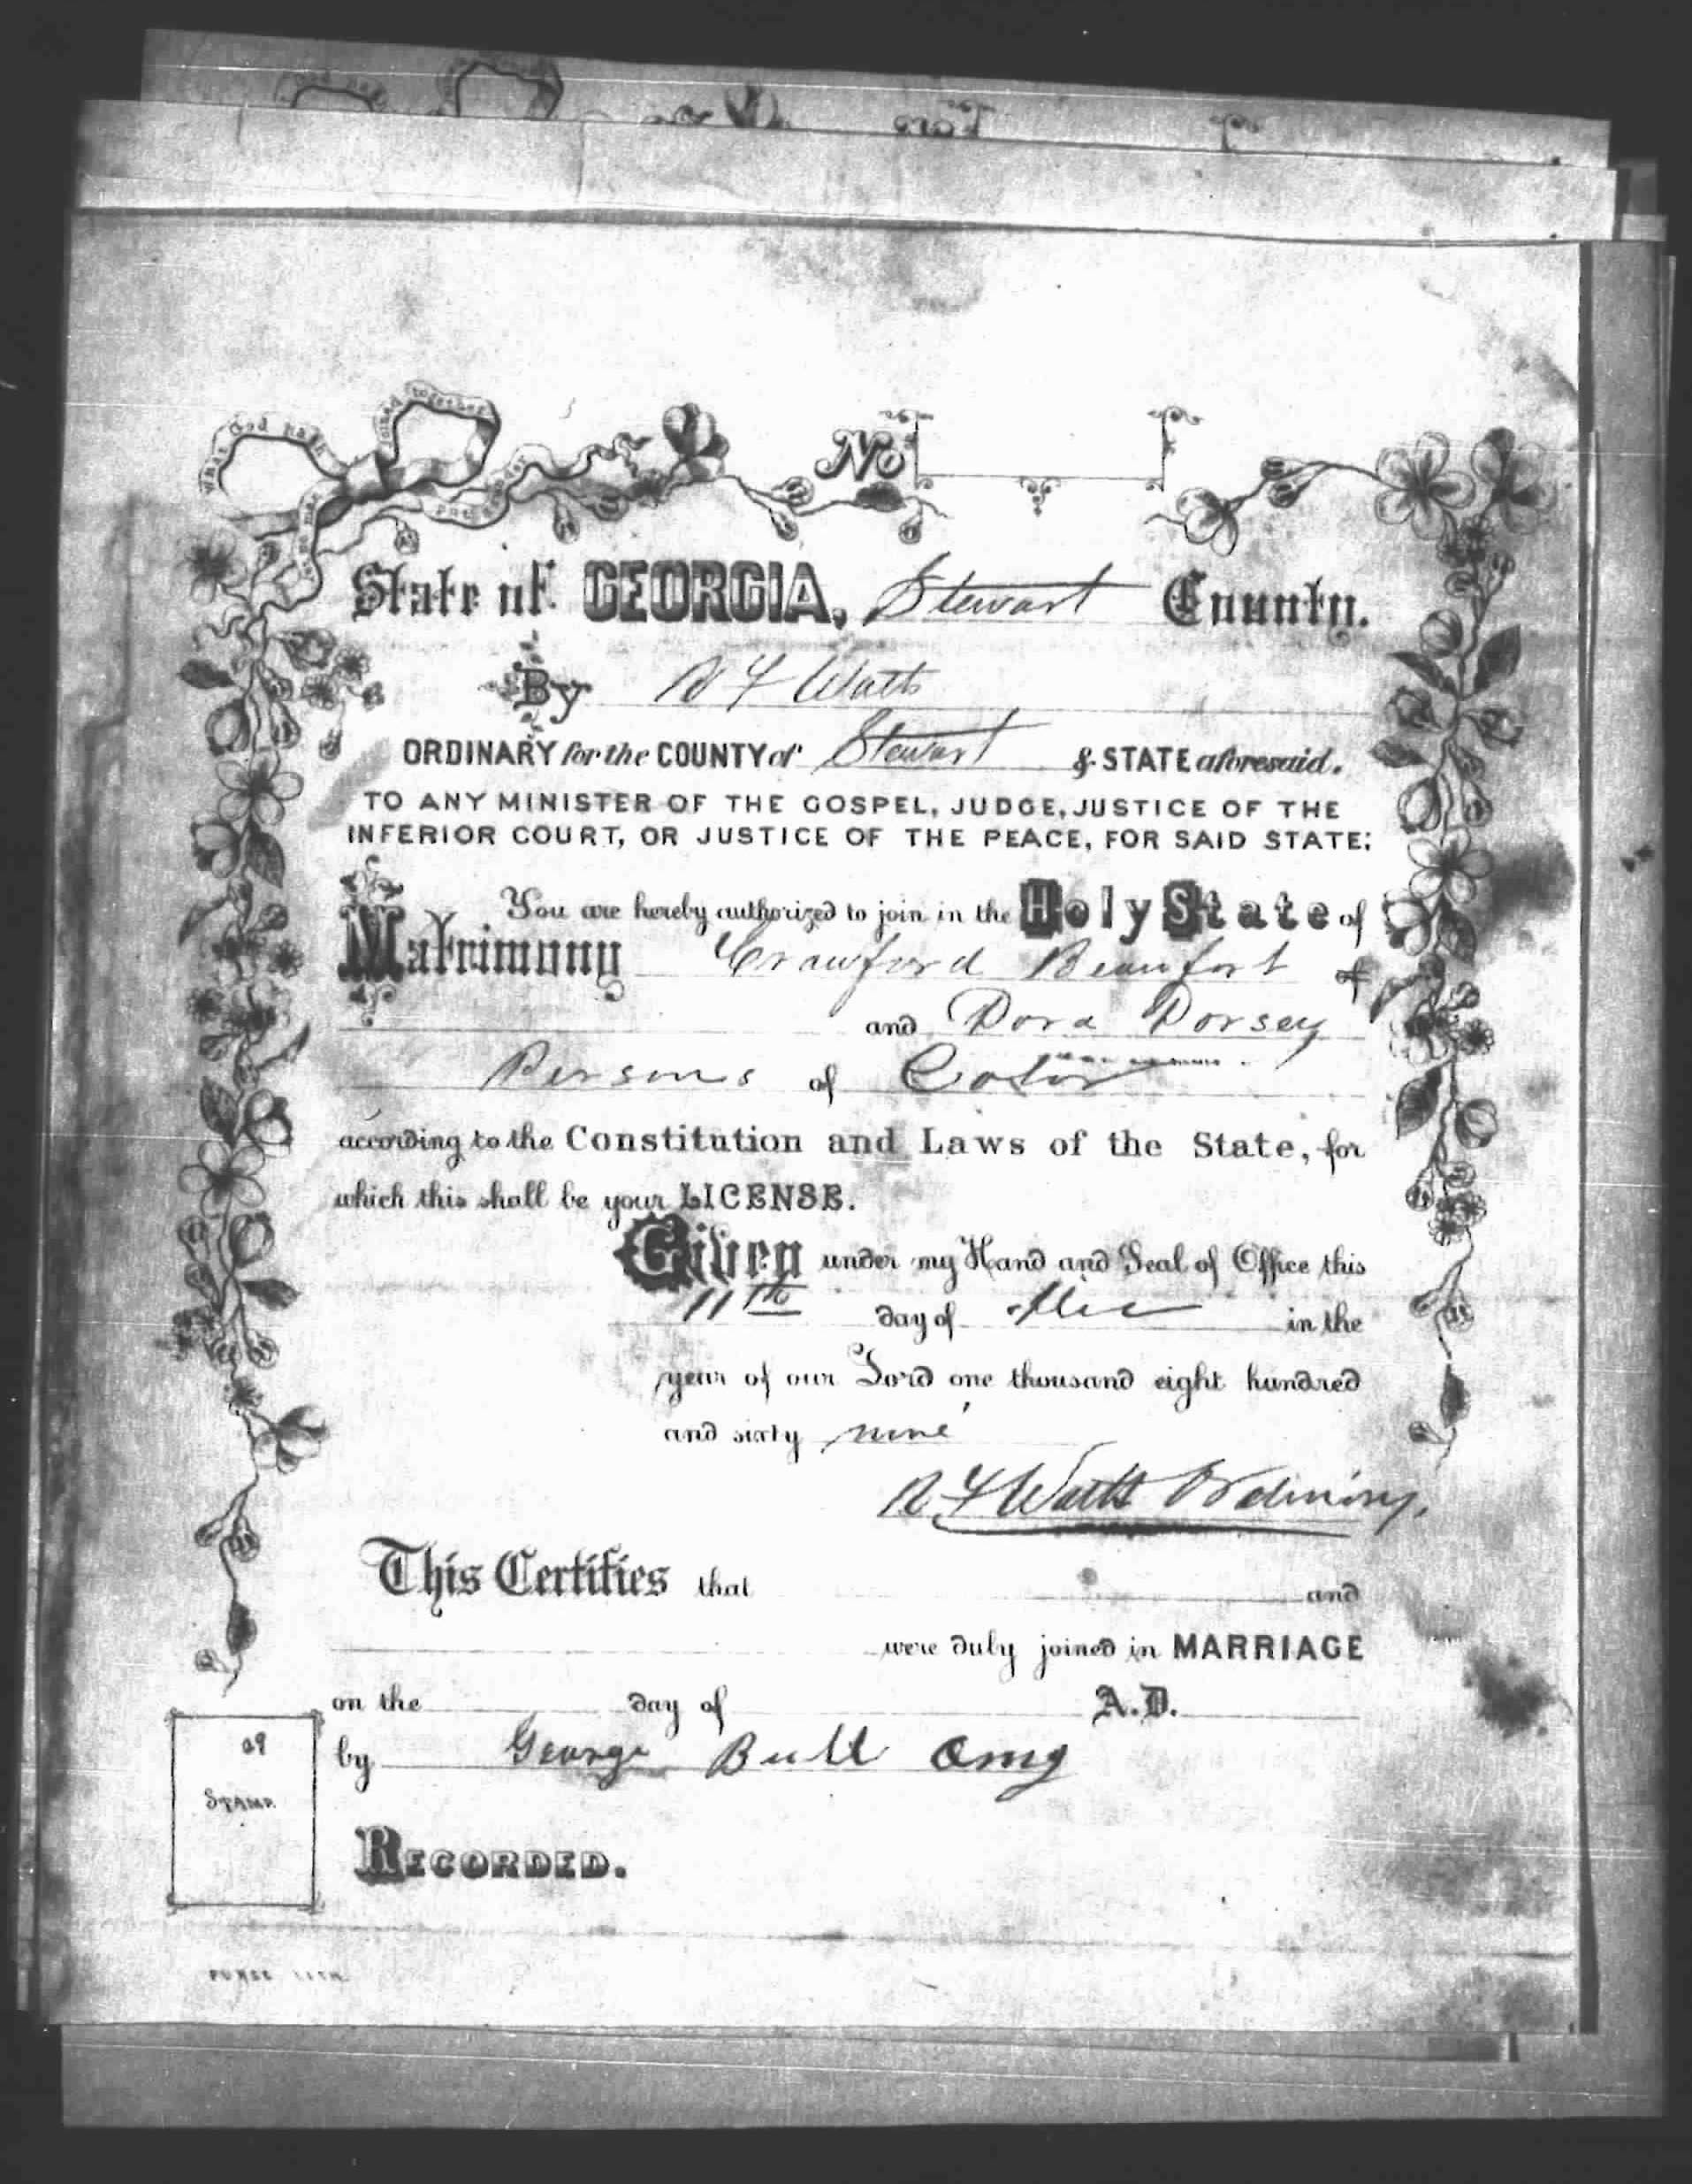 What God hath joined together let no man put asunder
No
State of GEORGIA, Stewart County.
By R F Watts
ORDINARY for the COUNTY of Stewart & STATE aforesaid.
TO ANY MINISTER OF THE GOSPEL, JUDGE, JUSTICE OF THE
INFERIOR COURT, OR JUSTICE OF THE PEACE, FOR SAID STATE:
You are hereby authorized to join in the Holy State of
Matrimony Crawford Beaufort &
and Dora Dorsey
Persons of Color
according to the Constitution and Laws of the State, for
which this shall be your LICENSE.
Given under my Hand and Seal of Office this
11th day of Dec in the
year of our Lord one thousand eight hundred
and sixty nine
R F Watts Ordinary.
This Certifies that and
were duly joined in MARRIAGE
on the day of A.D.
by George Bull
STAMP.
RECORDED.